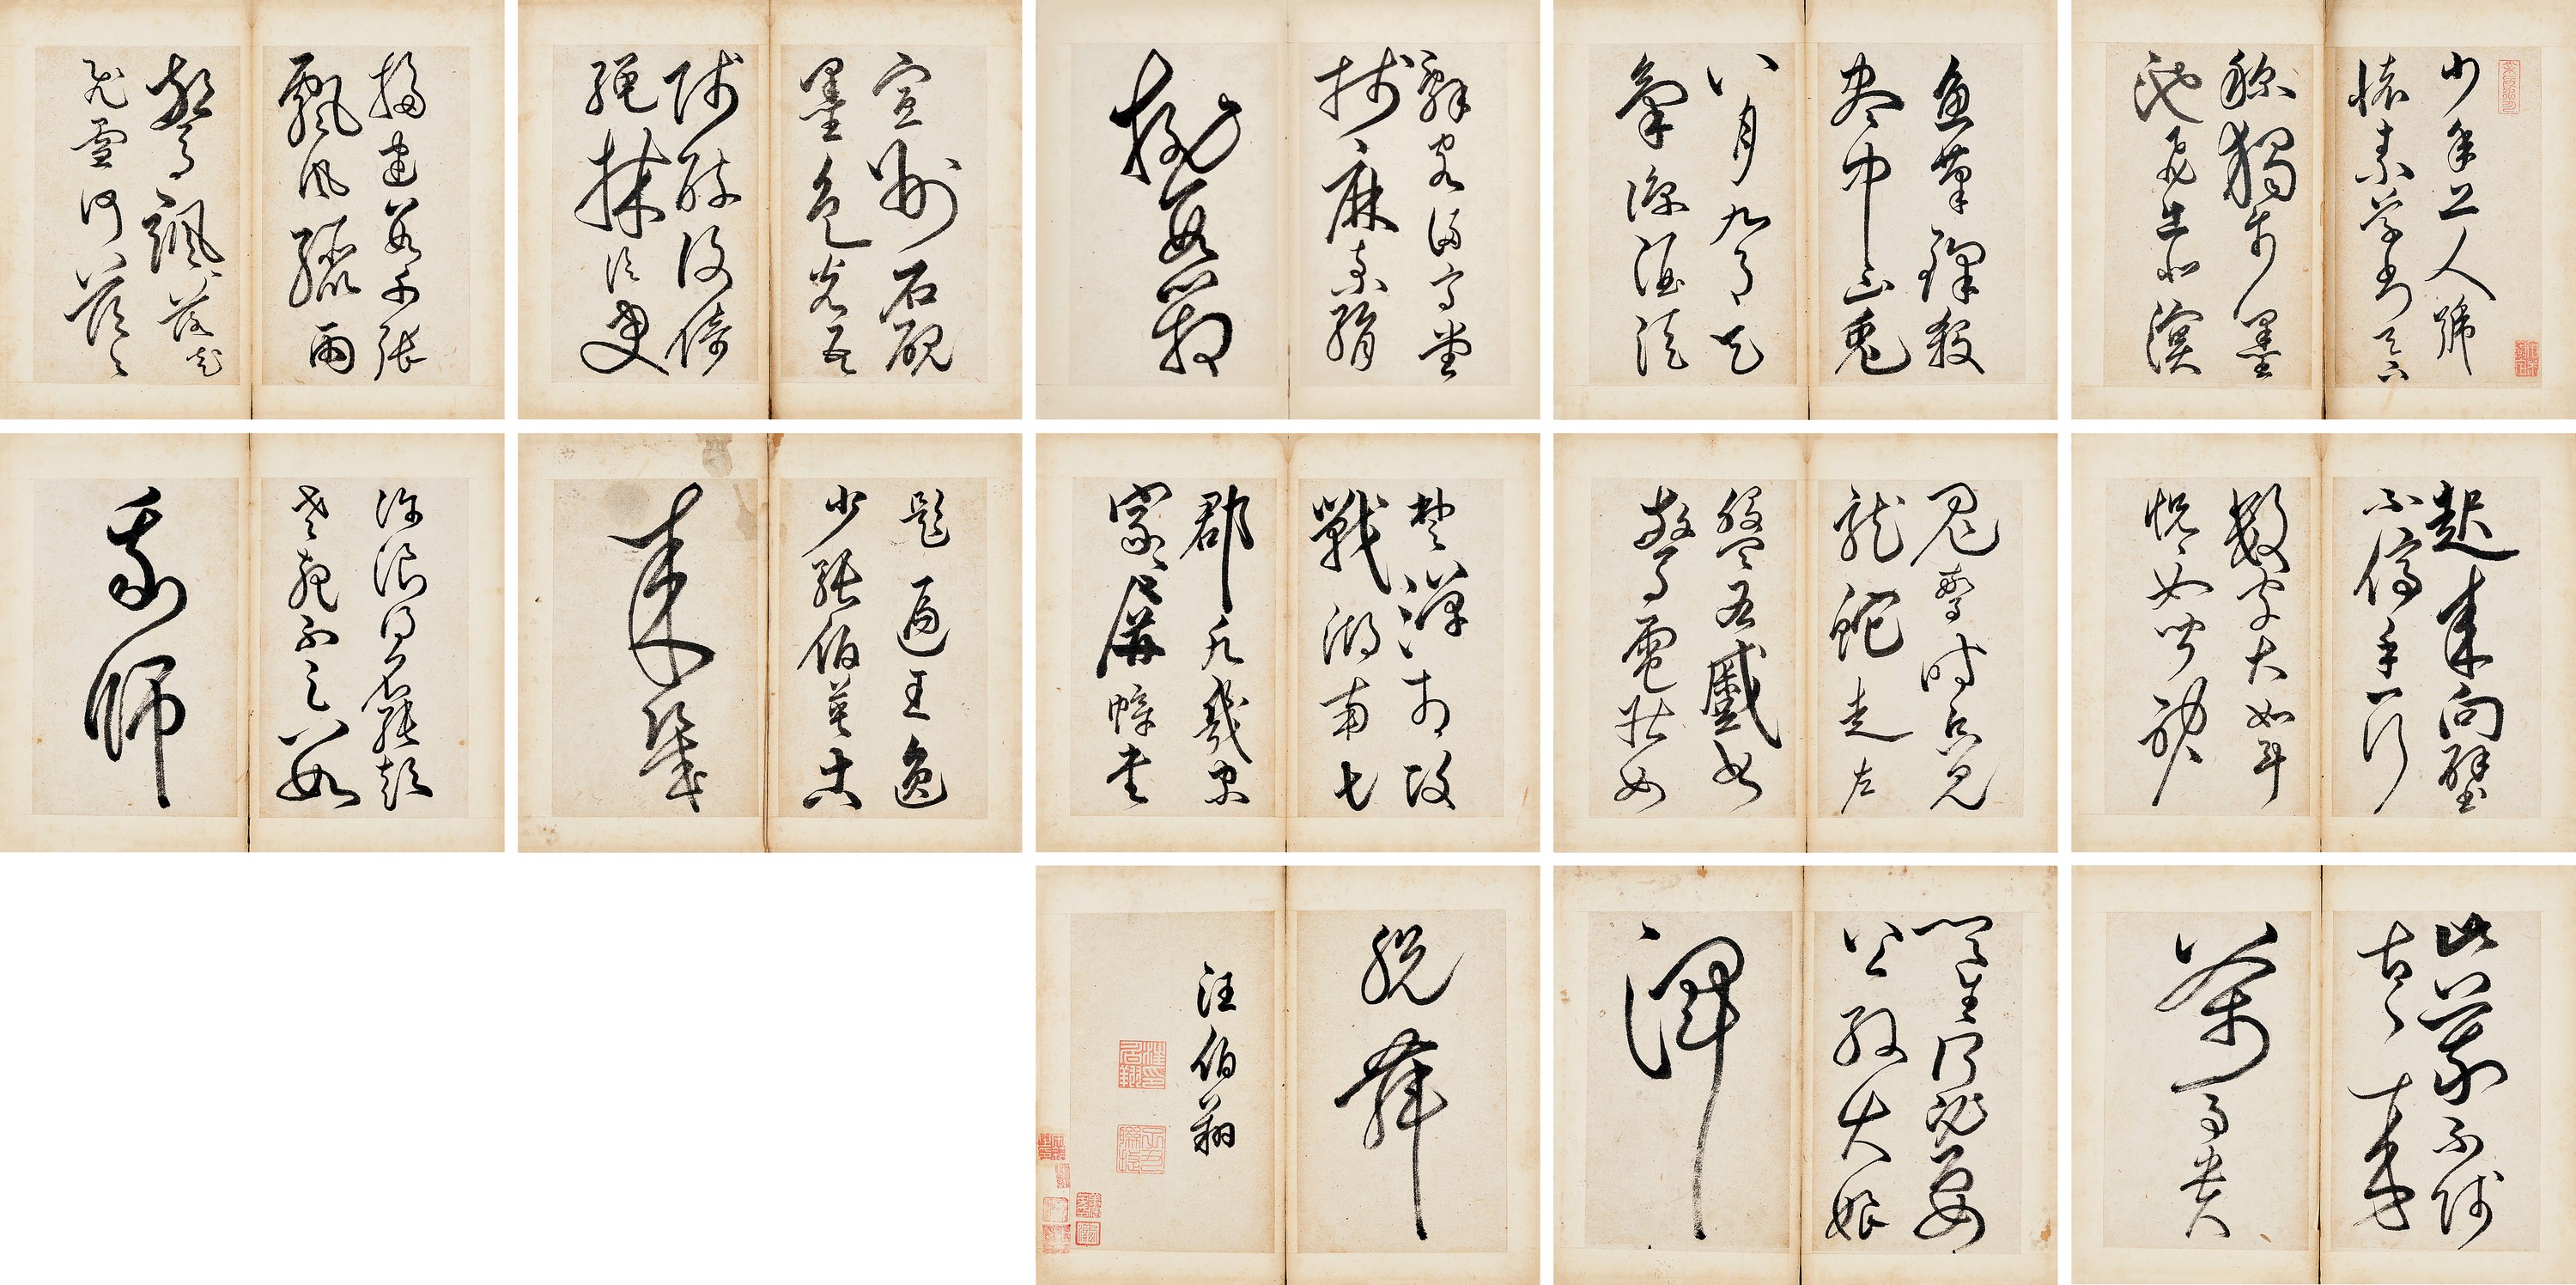 少年上人號
懷素草書天下
稱獨步墨
池飛出北溟
魚筆鋒殺
盡中山兔
八月九月天
氣涼酒徒
辭客滿高堂
牋麻素絹
排數箱
宣州石硯
墨色光吾
師醉後倚
繩床須臾
掃盡數千張
飄風驟雨
驚颯颯落花
飛雪何茫茫
起來向壁
不停手一行
數字大如斗
恍恍如聞神
鬼驚時時只見
龍蛇走左
盤右蹙如
驚電狀如
楚漢相攻
戰湖南七
郡凡幾家
家家屏障書
題遍王逸
少張伯英古
來幾
許浪得名張顛
老死不足數
我師
此義不師
古古來
萬
事貴
天生何必要
公孫大娘
渾
脫舞
汪伯翔